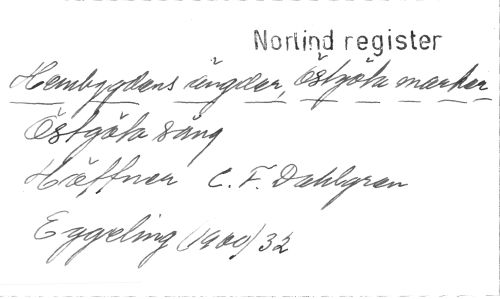 Norlind register
Hembygdens ängder, Östgöta marker
Östgöta sång
Häffner C. F. Dahlgren
Eggeling (1900) 32